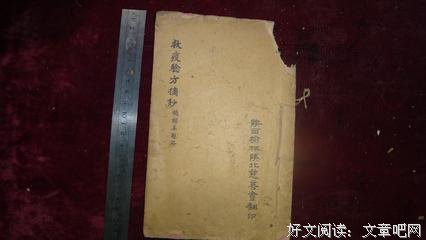 陝西榆林陝北慈善會翻印
救疫驗方摘抄
好文阅读：文章吧网